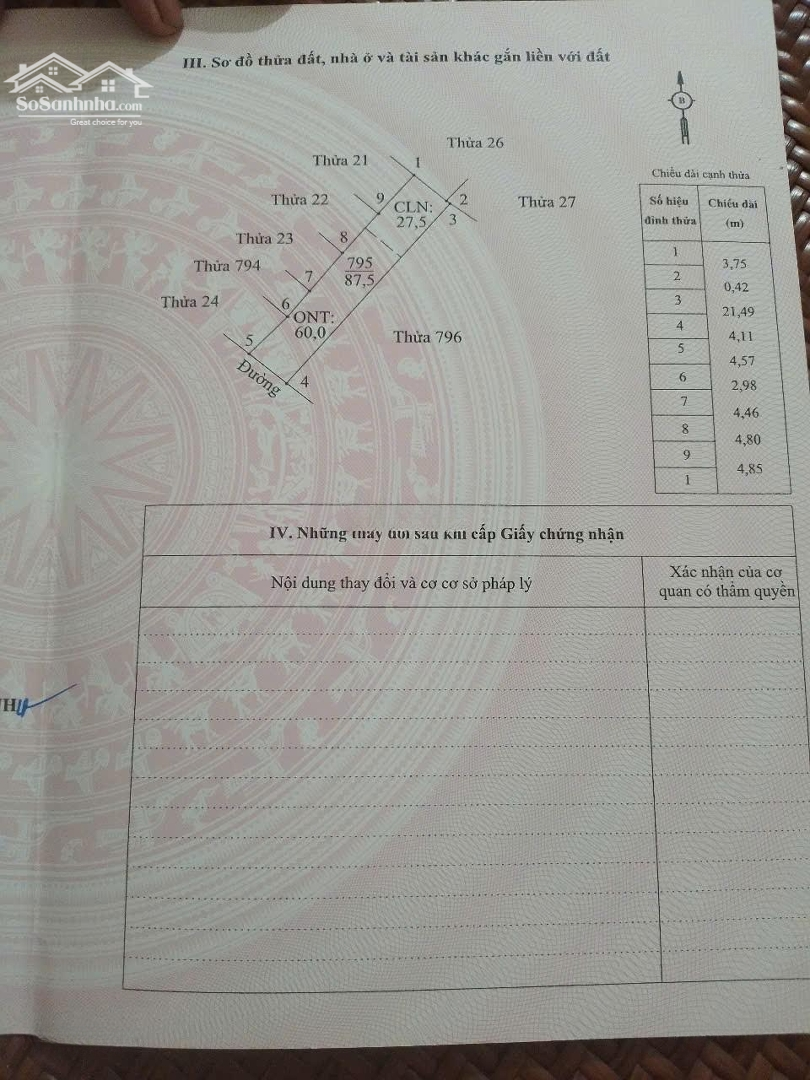 III. Sơ đồ thửa đất, nhà ở và tài sản khác gắn liền với đất
SoSanhnha.com
Great choice for you
B
Thửa 26
Thửa 21
1
Thửa 22
9
CLN:
27,5
2
3
Thửa 27
Thửa 23
8
795
87,5
Thửa 794
7
Thửa 24
6
ONT:
60,0
Thửa 796
5
4
Đường
Chiều dài cạnh thửa
Số hiệu đỉnh thửa
Chiều dài (m)
1
3,75
2
0,42
3
21,49
4
4,11
5
4,57
6
2,98
7
4,46
8
4,80
9
4,85
1
IV. Những thay đổi sau khi cấp Giấy chứng nhận
Nội dung thay đổi và cơ cơ sở pháp lý
Xác nhận của cơ
quan có thẩm quyền